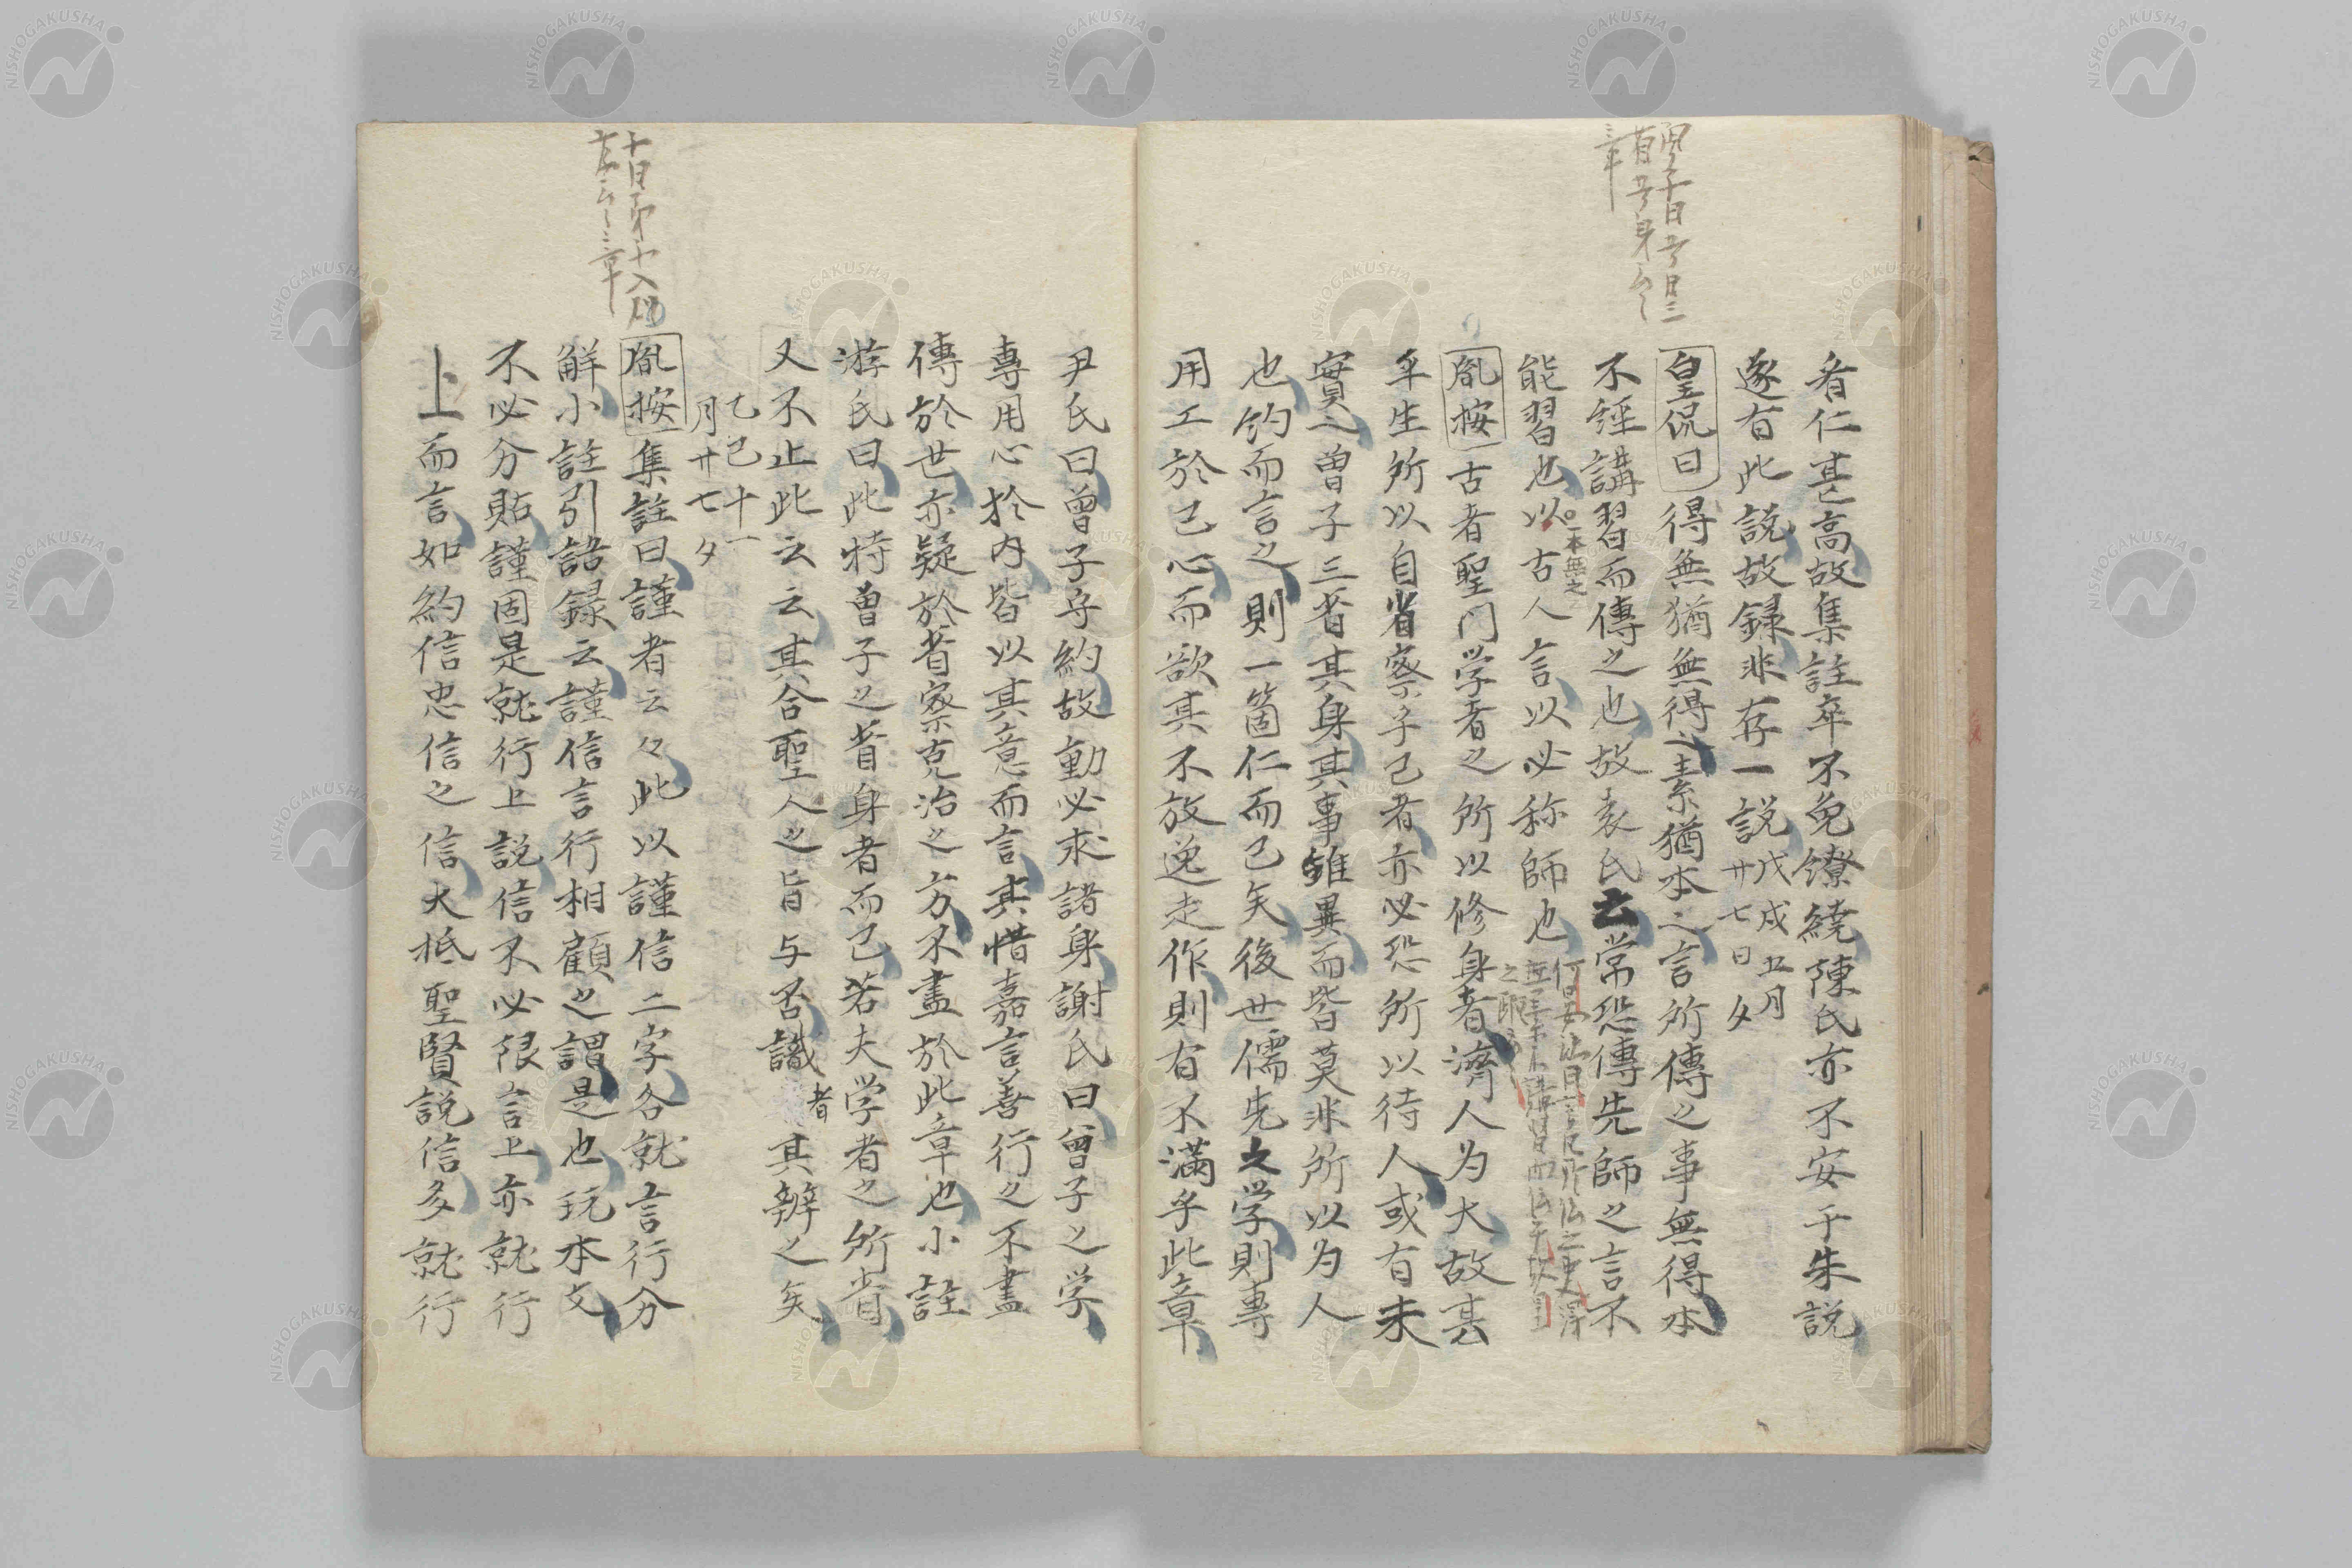 者仁甚高故集註卒不免繚繞陳氏亦不安于朱説
遂有此説故録非存一説
戊戌五月
廿七日夕
皇侃曰得無猶無得之素猶本之言所傳之事無得本
不経講習而傳之也故袁氏云常恐傳先師之言不
能習也以古人言以必称師也
一本無之
胤按古者聖門学者之所以修身者濟人为大故甚
平生所以自省察乎己者亦必恐所以待人或有未
實之曽子三省其身其事雖異而皆莫非所以为人
也約而言之則一箇仁而已矣後世儒先之学則專
用工於己心而欲其不放逸走作則有不満乎此章
尹氏曰曽子守約故動必求諸身謝氏曰曾子之学
專用心於内皆以其意而言其惜嘉言善行之不盡
傳於世亦疑於省察克治之方不盡於此章也小註
游氏曰此特曽子之省身者而已若夫学者之所省
又不止此云云其合聖人之旨与否識者其辨之矣
乙巳十一
月廿七夕
胤按集註曰謹者云々此以謹信二字各就言行分
解小註引語録云謹信言行相顧之謂是也玩本文
不必分貼謹固是就行上説信不必限言上亦就行
上而言如約信忠信之信大抵聖賢説信多就行